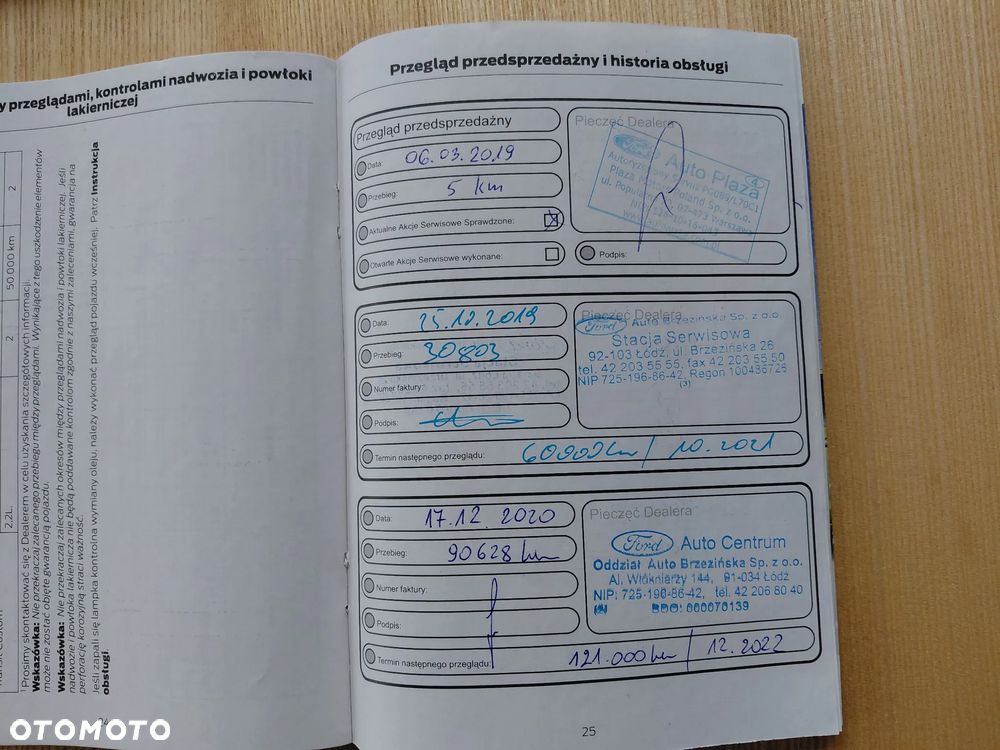 y przeglądami, kontrolami nadwozia i powłoki
lakierniczej
2
50.000 km
2
2,2L
Transit Custom
¹ Prosimy skontaktować się z Dealerem w celu uzyskania szczegółowych informacji.
Wskazówka: Nie przekraczaj zalecanego przebiegu między przeglądami. Wynikające z tego uszkodzenie elementów
może nie zostać objęte gwarancją pojazdu.
Wskazówka: Nie przekraczaj zalecanych okresów między przeglądami nadwozia i powłoki lakierniczej. Jeśli
nadwozie i powłoka lakiernicza nie będą poddawane kontrolom zgodnie z naszymi zaleceniami, gwarancja na
perforację korozyjną straci ważność.
Jeśli zapali się lampka kontrolna wymiany oleju, należy wykonać przegląd pojazdu wcześniej. Patrz Instrukcja
obsługi.
24
Przegląd przedsprzedażny i historia obsługi
Przegląd przedsprzedażny
Data: 06.03.2019
Przebieg: 5 km
Aktualne Akcje Serwisowe Sprawdzone:
Otwarte Akcje Serwisowe wykonane:
Pieczęć Dealera
Ford Auto Plaza
Autoryzowany Serwis
Plaza Poland Sp. z o.o.
ul. 02-473 Warszawa
Podpis:
Data: 25.10.2019
Przebieg: 30803
Numer faktury:
Podpis:
Termin następnego przeglądu: 60000km / 10.2021
Pieczęć Dealera
Ford Auto Brzezińska Sp. z o.o.
Stacja Serwisowa
92-103 Łódź, ul. Brzezińska 26
tel. 42 203 55 55, fax 42 203 55 50
NIP 725-196-86-42, Regon 100486728
(3)
Data: 17.12.2020
Przebieg: 90628 km
Numer faktury:
Podpis:
Termin następnego przeglądu: 121.000km / 12.2022
Pieczęć Dealera
Ford Auto Centrum
Oddział Auto Brzezińska Sp. z o.o.
Al. Włókniarzy 144, 91-034 Łódź
NIP: 725-196-86-42, tel. 42 206 80 40
BDO: 000070139
25
OTOMOTO